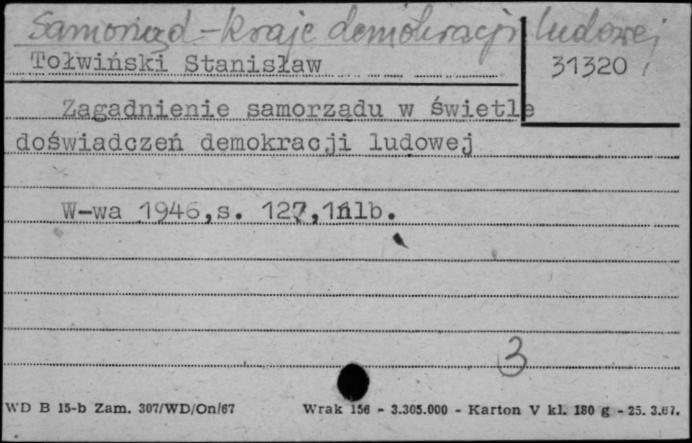 Samorząd - kraje demokracji ludowej
Tołwiński Stanisław
31320
Zagadnienie samorządu w świetle
doświadczeń demokracji ludowej
W-wa 1946,s. 127,1nlb.
3
WD B 15-b Zam. 307/WD/On/67 Wrak 156 - 3.305.000 - Karton V kl. 180 g - 25. 3.67.